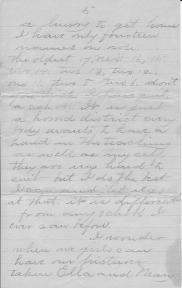 5
or hurry to get home
I have only fourteen
names on roll.
The oldest 17, next 16, 15
two 14, two 13, two 12,
one 10, two 7, two 6. don't
laugh at. It is just
a homd district every
body wants to have a
hand in the teaching
as well as myself
they are very hard to
suit but I do the best
I can and let it go
at that. it is different
from any school I
ever saw before.
I wonder
when we girls can
have our pictures
taken Ella and Mary